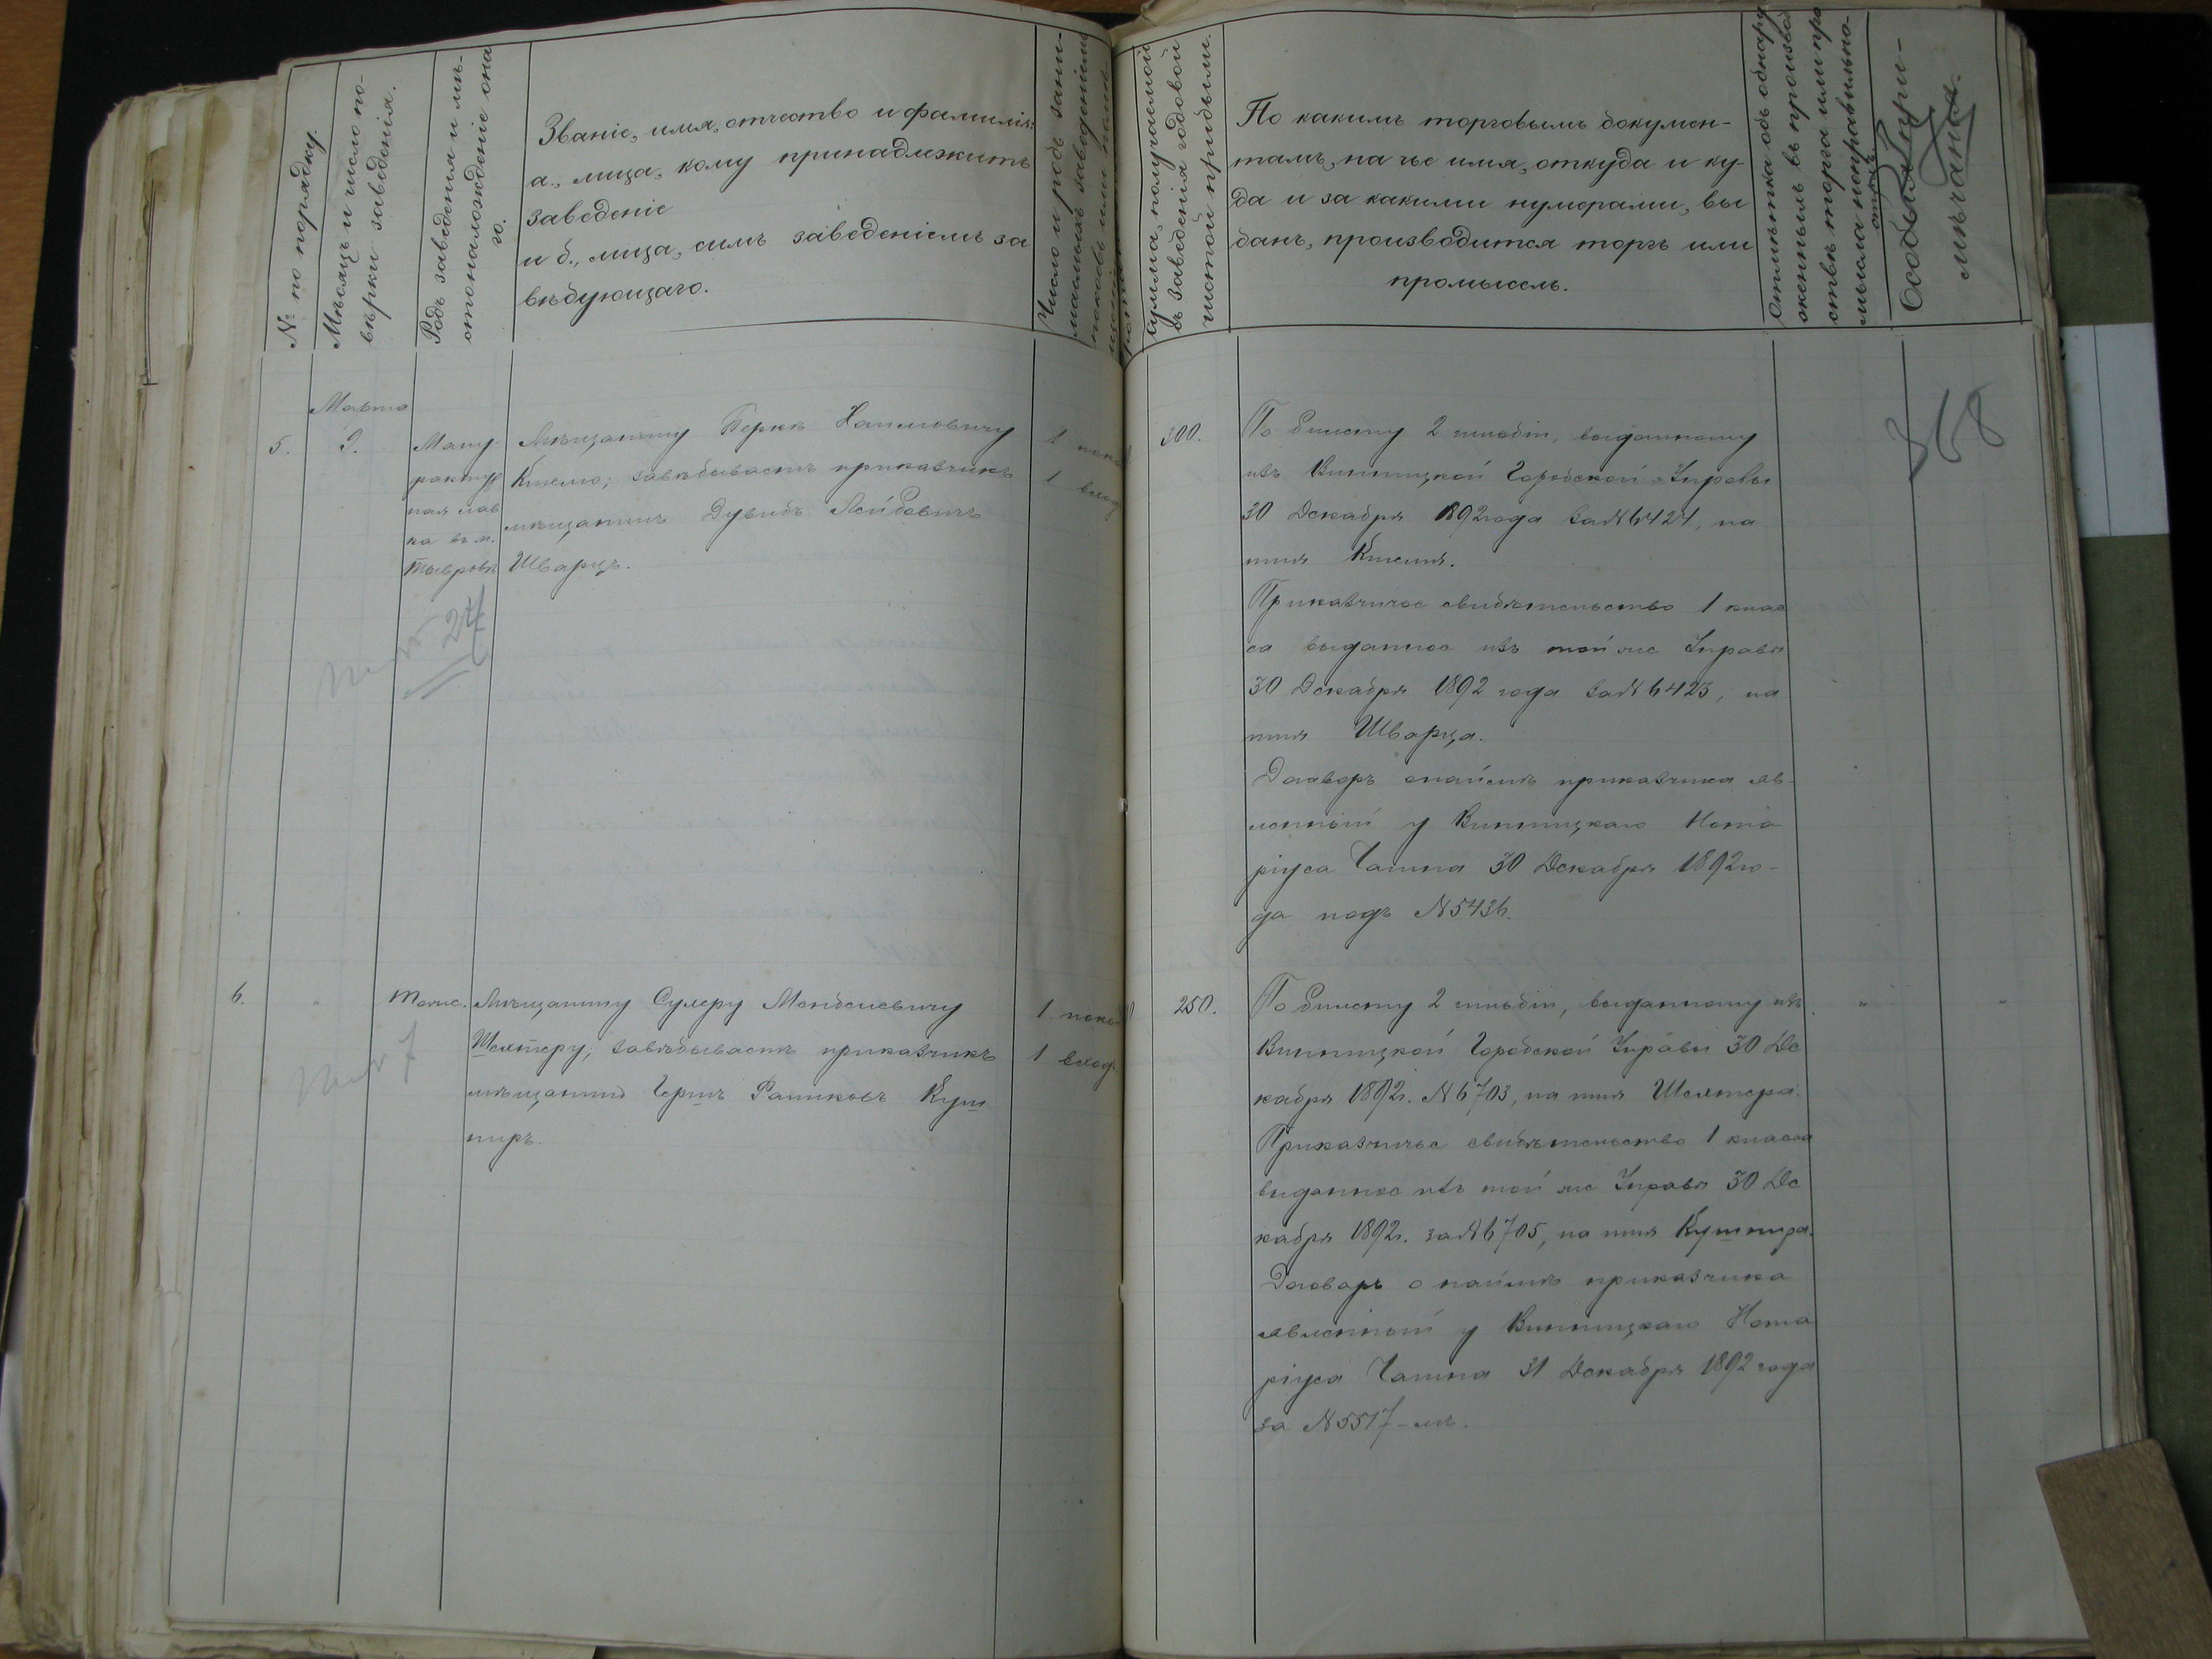 № по порядку
Мѣсяцъ и число по-
вѣрки заведенія.
Родъ заведенія и мѣ-
стонахожденіе она
го.
Званіе, имя, отчество и фамилія:
а., лица, кому принадлежитъ
заведеніе
и б., лица, симъ заведеніемъ за
вѣдующаго.
Число и родъ зани-
маемыхъ заведеніемъ
покоевъ или
Сумма, получаемой
съ заведенія годовой
чистой прибыли.
По какимъ торговымъ докумен-
тамъ, на чье имя, откуда и ку-
да и за какими нумерами, вы
данъ, производится торгъ или
промыселъ.
Отмѣтка объ обнару
женныхъ въ производ
ствѣ торга или про
мысла неправильно-
стяхъ.
Особыя при-
мѣчанія.
368
5.
Марта
9.
Ману-
рактур
ная лав
ка въ м.
Тывровѣ
Мѣщанину Беркѣ Хаимовичу
Киселю; завѣдываетъ прикащикъ
мѣщанинъ Дувидъ Лейбовичъ
Шварцъ.
1 пок
1 вход
300.
По билету 2 гильдіи, выданному
изъ Винницкой Городской Управы
30 Декабря 1892 года за№ 6424, на
имя Киселя.
Приказчичье свидѣтельство 1 клас
са выданное изъ той же Управы
30 Декабря 1892 года за№ 6423, на
имя Шварца.
Договоръ о наймѣ приказчика яв-
ленный у Винницкаго Нота
ріуса Чапина 30 Декабря 1892 го-
да подъ №5436.
27
6.
"
Тоже.
Мѣщанину Сулеру Менделевичу
Шехтеру; завѣдываетъ приказчикъ
мѣщанинъ Гершъ Рашковъ Куш
ниръ.
1 покой
1 вход.
7
250.
По билету 2 гильдіи, выданному изъ
Винницкой Городской Управы 30 Де
кабря 1892г. №6703, на имя Шехтера.
Приказчичье свидѣтельство 1 класса
выданное изъ той же Управы 30 Де
кабря 1892г. за№6705, на имя Кушнира.
Договоръ о наймѣ приказчика
явленный у Винницкаго Нота
ріуса Чапина 31 Декабря 1892 года
за №5517-мъ.
"
"